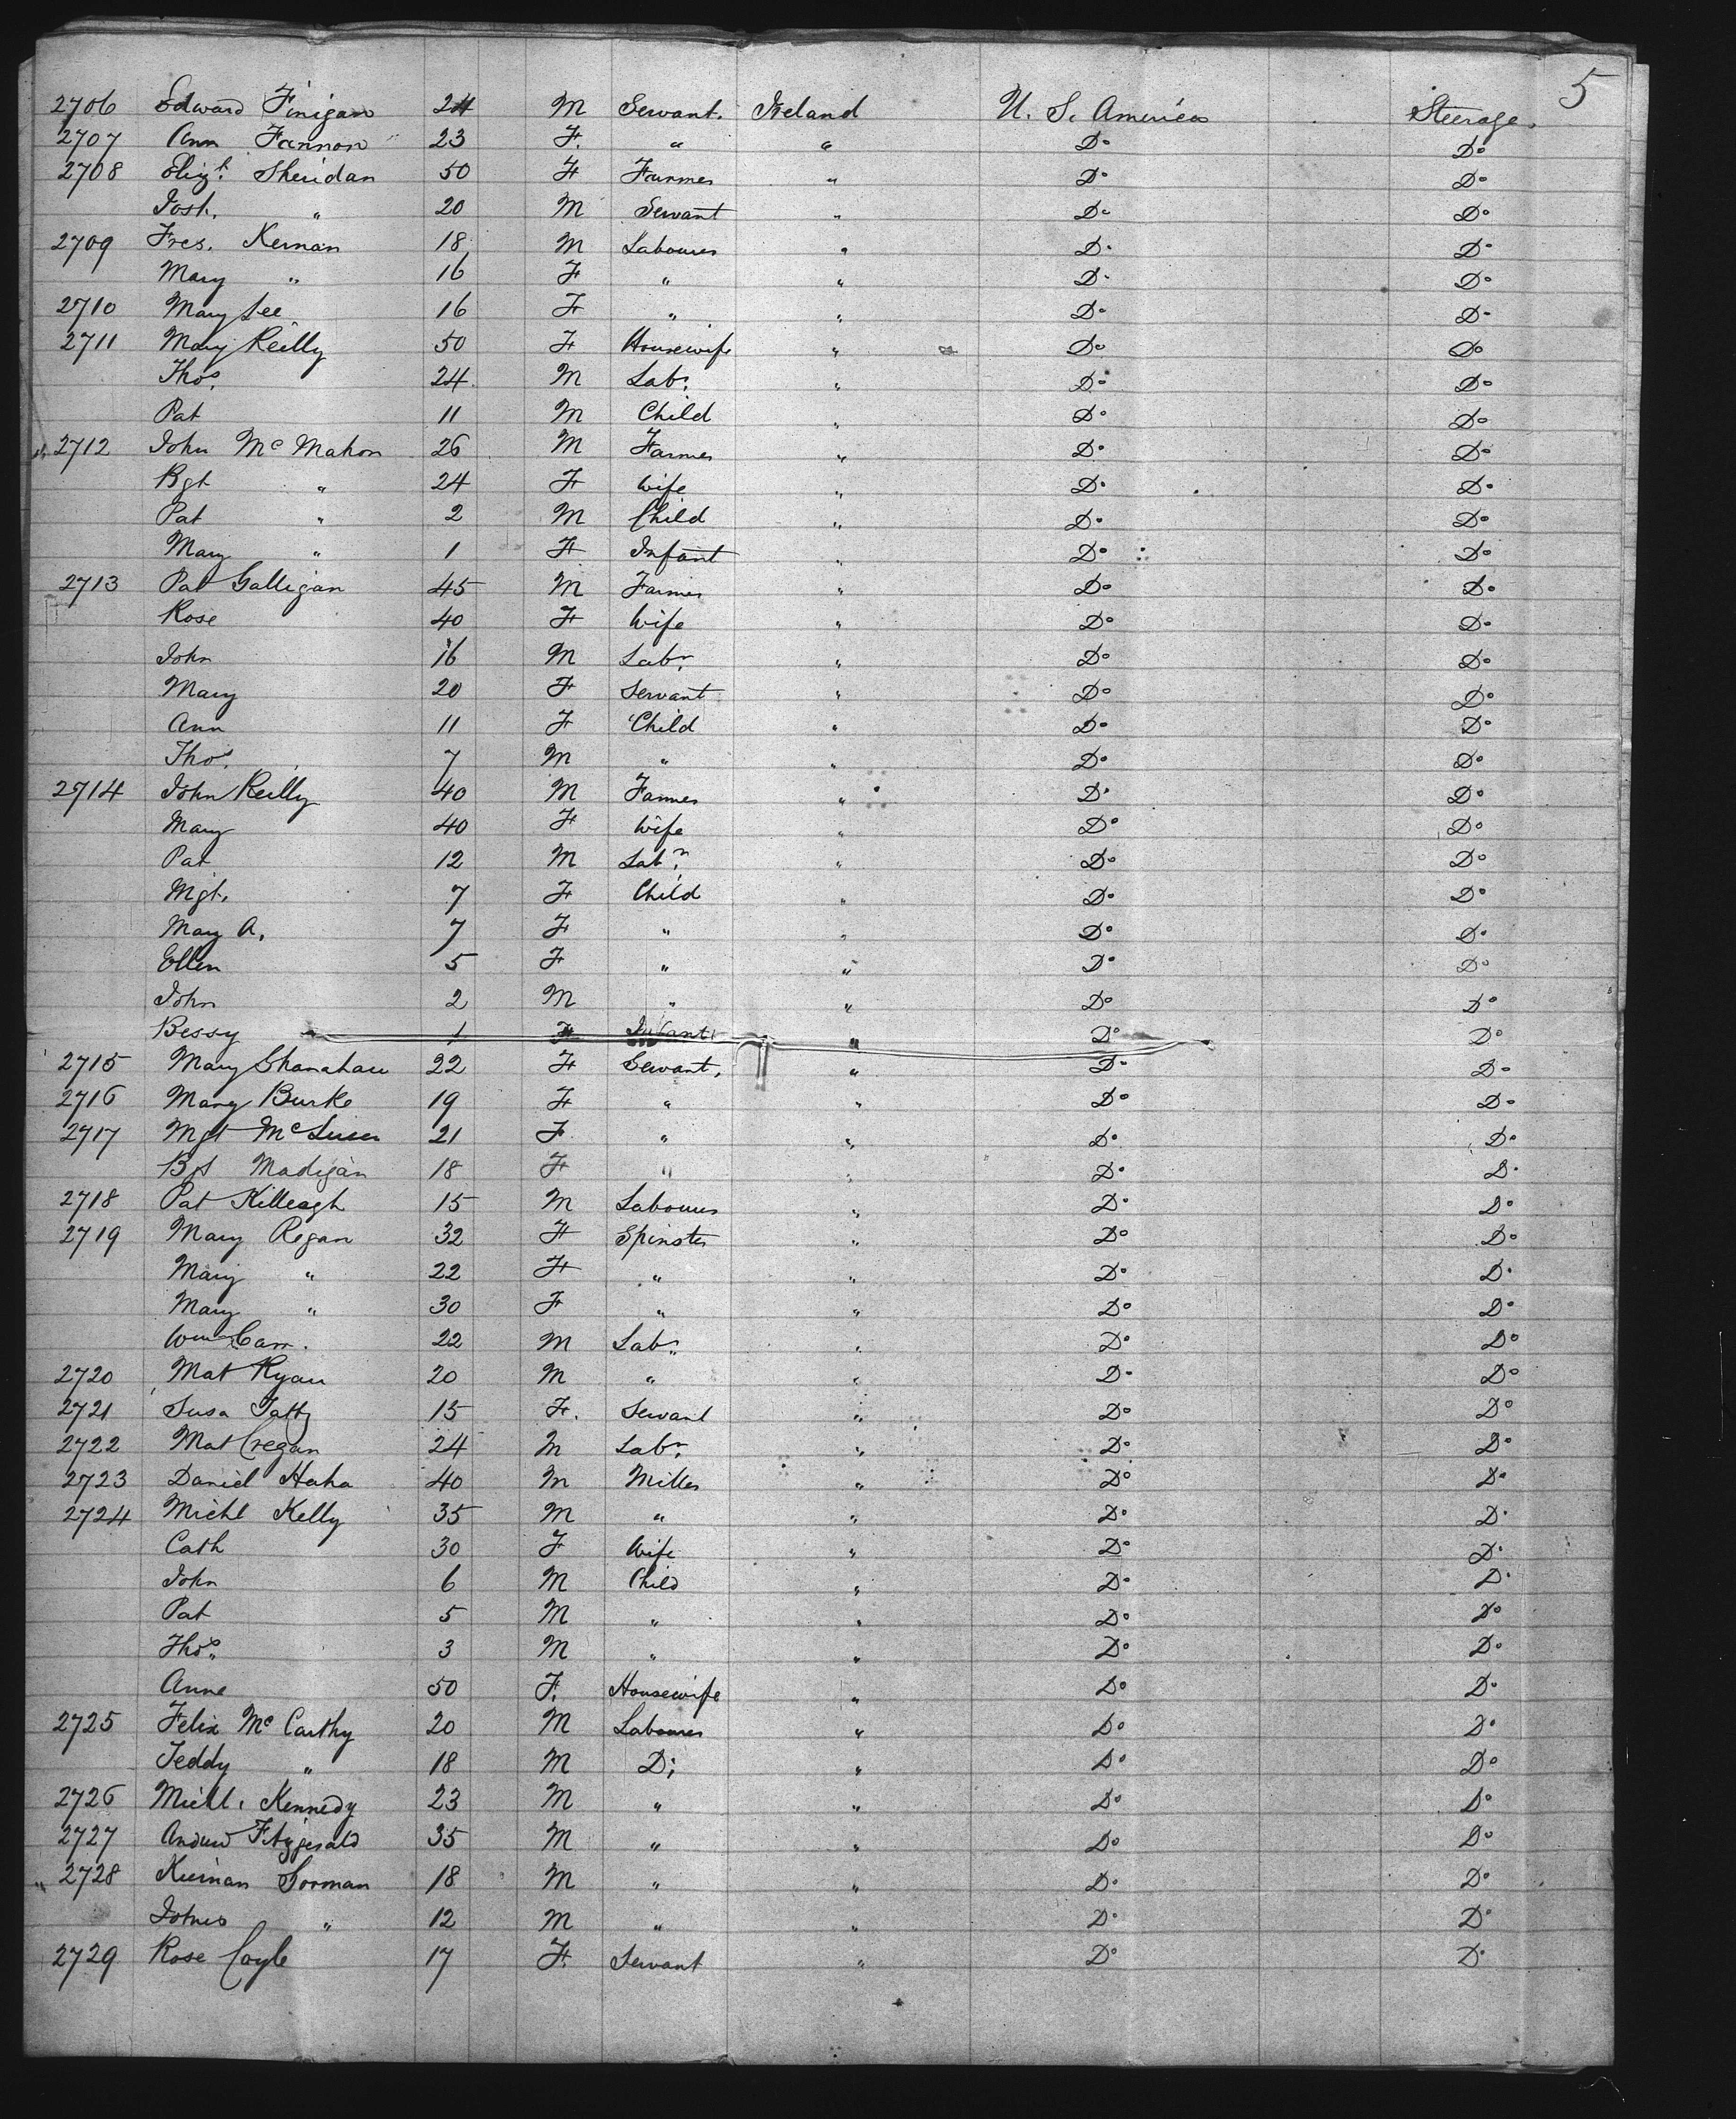 5
2706 Edward Finigan 24 M Servant. Ireland U. S. America Steerage.
2707 Ann Fannon 23 F. " " Do Do
2708 Elizth. Sheridan 50 F Farmer " Do Do
Josh. " 20 M Servant " Do Do
2709 Fres. Kernan 18 M Labourer " Do Do
Mary " 16 F " " Do Do
2710 Mary Lee 16 F " " Do Do
2711 Mary Reilly 50 F Housewife " Do Do
Thos. 24 M Labr. " Do Do
Pat 11 M Child " Do Do
2712 John McMahon 26 M Farmer " Do Do
Bgt " 24 F Wife " Do Do
Pat " 2 M Child " Do Do
Mary " 1 F Infant " Do Do
2713 Pat Galligan 45 M Farmer " Do Do
Rose 40 F Wife " Do Do
John 16 M Labr. " Do Do
Mary 20 F Servant " Do Do
Ann 11 F Child " Do Do
Thos. 7 M " " Do Do
2714 John Reilly 40 M Farmer " Do Do
Mary 40 F Wife " Do Do
Pat 12 M Labr. " Do Do
Mgt. 7 F Child " Do Do
Mary A. 7 F " " Do Do
Ellen 5 F " " Do Do
John 2 M " " Do Do
Bessy 1 F Infant " Do Do
2715 Mary Shanahan 22 F Servant. " Do Do
2716 Mary Burke 19 F " " Do Do
2717 Mgt 21 F " " Do Do
Bgt Madigan 18 F " " Do Do
2718 Pat Killeagh 15 M Labourer " Do Do
2719 Mary Regan 32 F Spinster " Do Do
Mary " 22 F " " Do Do
Mary " 30 F " " Do Do
Wm Carr. 22 M Labr. " Do Do
2720 Mat Ryan 20 M " " Do Do
2721 Susa 15 F. Servant " Do Do
2722 Mat Cregan 24 M Labr. " Do Do
2723 Daniel Haha 40 M Miller " Do Do
2724 Michl Kelly 35 M " " Do Do
Cath 30 F Wife " Do Do
John 6 M Child " Do Do
Pat 5 M " " Do Do
Thos. 3 M " " Do Do
Anne 50 F. Housewife " Do Do
2725 Felix McCarthy 20 M Labourer " Do Do
Teddy " 18 M Do " Do Do
2726 Michl. Kennedy 23 M " " Do Do
2727 Andrew Fitzgerald 35 M " " Do Do
" 2728 Kiernan Gorman 18 M " " Do Do
" 12 M " " Do Do
2729 Rose Coyle 17 F. Servant " Do Do